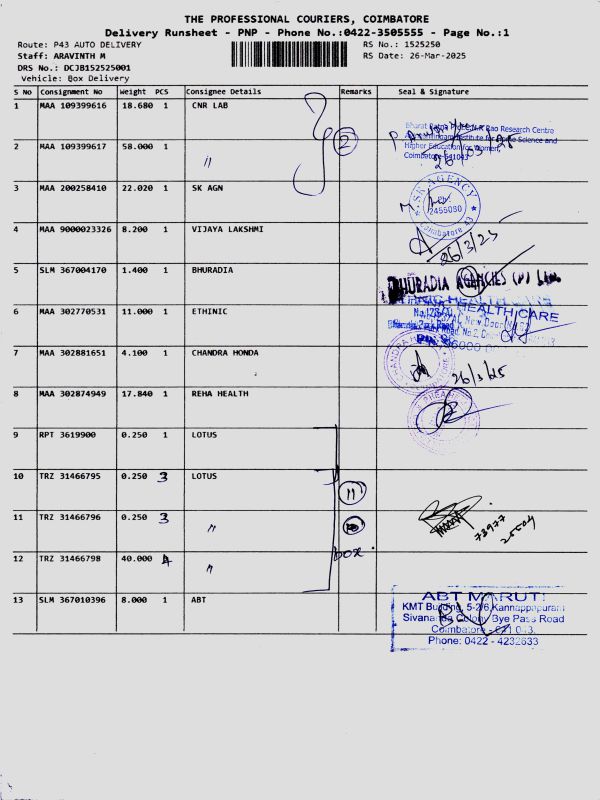 THE PROFESSIONAL COURIERS, COIMBATORE
Delivery Runsheet - PNP - Phone No.:0422-3505555 - Page No.:1
Route: P43 AUTO DELIVERY
RS No.: 1525250
Staff: ARAVINTH M
RS Date: 26-Mar-2025
DRS No.: DCJB152525001
Vehicle: Box Delivery
S No Consignment No Weight PCS Consignee Details Remarks Seal & Signature
1 MAA 109399616 18.680 1 CNR LAB
2 MAA 109399617 58.000 1 " 2
Rao Research Centre
Institute for Home Science and
Higher Education for Women,
Coimbatore-641043
26/03/25
3 MAA 200258410 22.020 1 SK AGN
SK AGENCY
2455080
Coimbatore 43
4 MAA 9000023326 8.200 1 VIJAYA LAKSHMI
26/3/25
5 SLM 367004170 1.400 1 BHURADIA
BHURADIA AGENCIES (P) Ltd.
6 MAA 302770531 11.000 1 ETHINIC
HEALTH CARE
7 MAA 302881651 4.100 1 CHANDRA HONDA
26/3/25
8 MAA 302874949 17.840 1 REHA HEALTH
9 RPT 3619900 0.250 1 LOTUS
10 TRZ 31466795 0.250 3 LOTUS
11
11 TRZ 31466796 0.250 3 "
12 TRZ 31466798 40.000 4 "
box
13 SLM 367010396 8.000 1 ABT
ABT MARUTI
KMT Building, 5-2/6, Kannappapuram
Sivananda Colony Bye Pass Road
Coimbatore - 641 043.
Phone: 0422 - 4232633